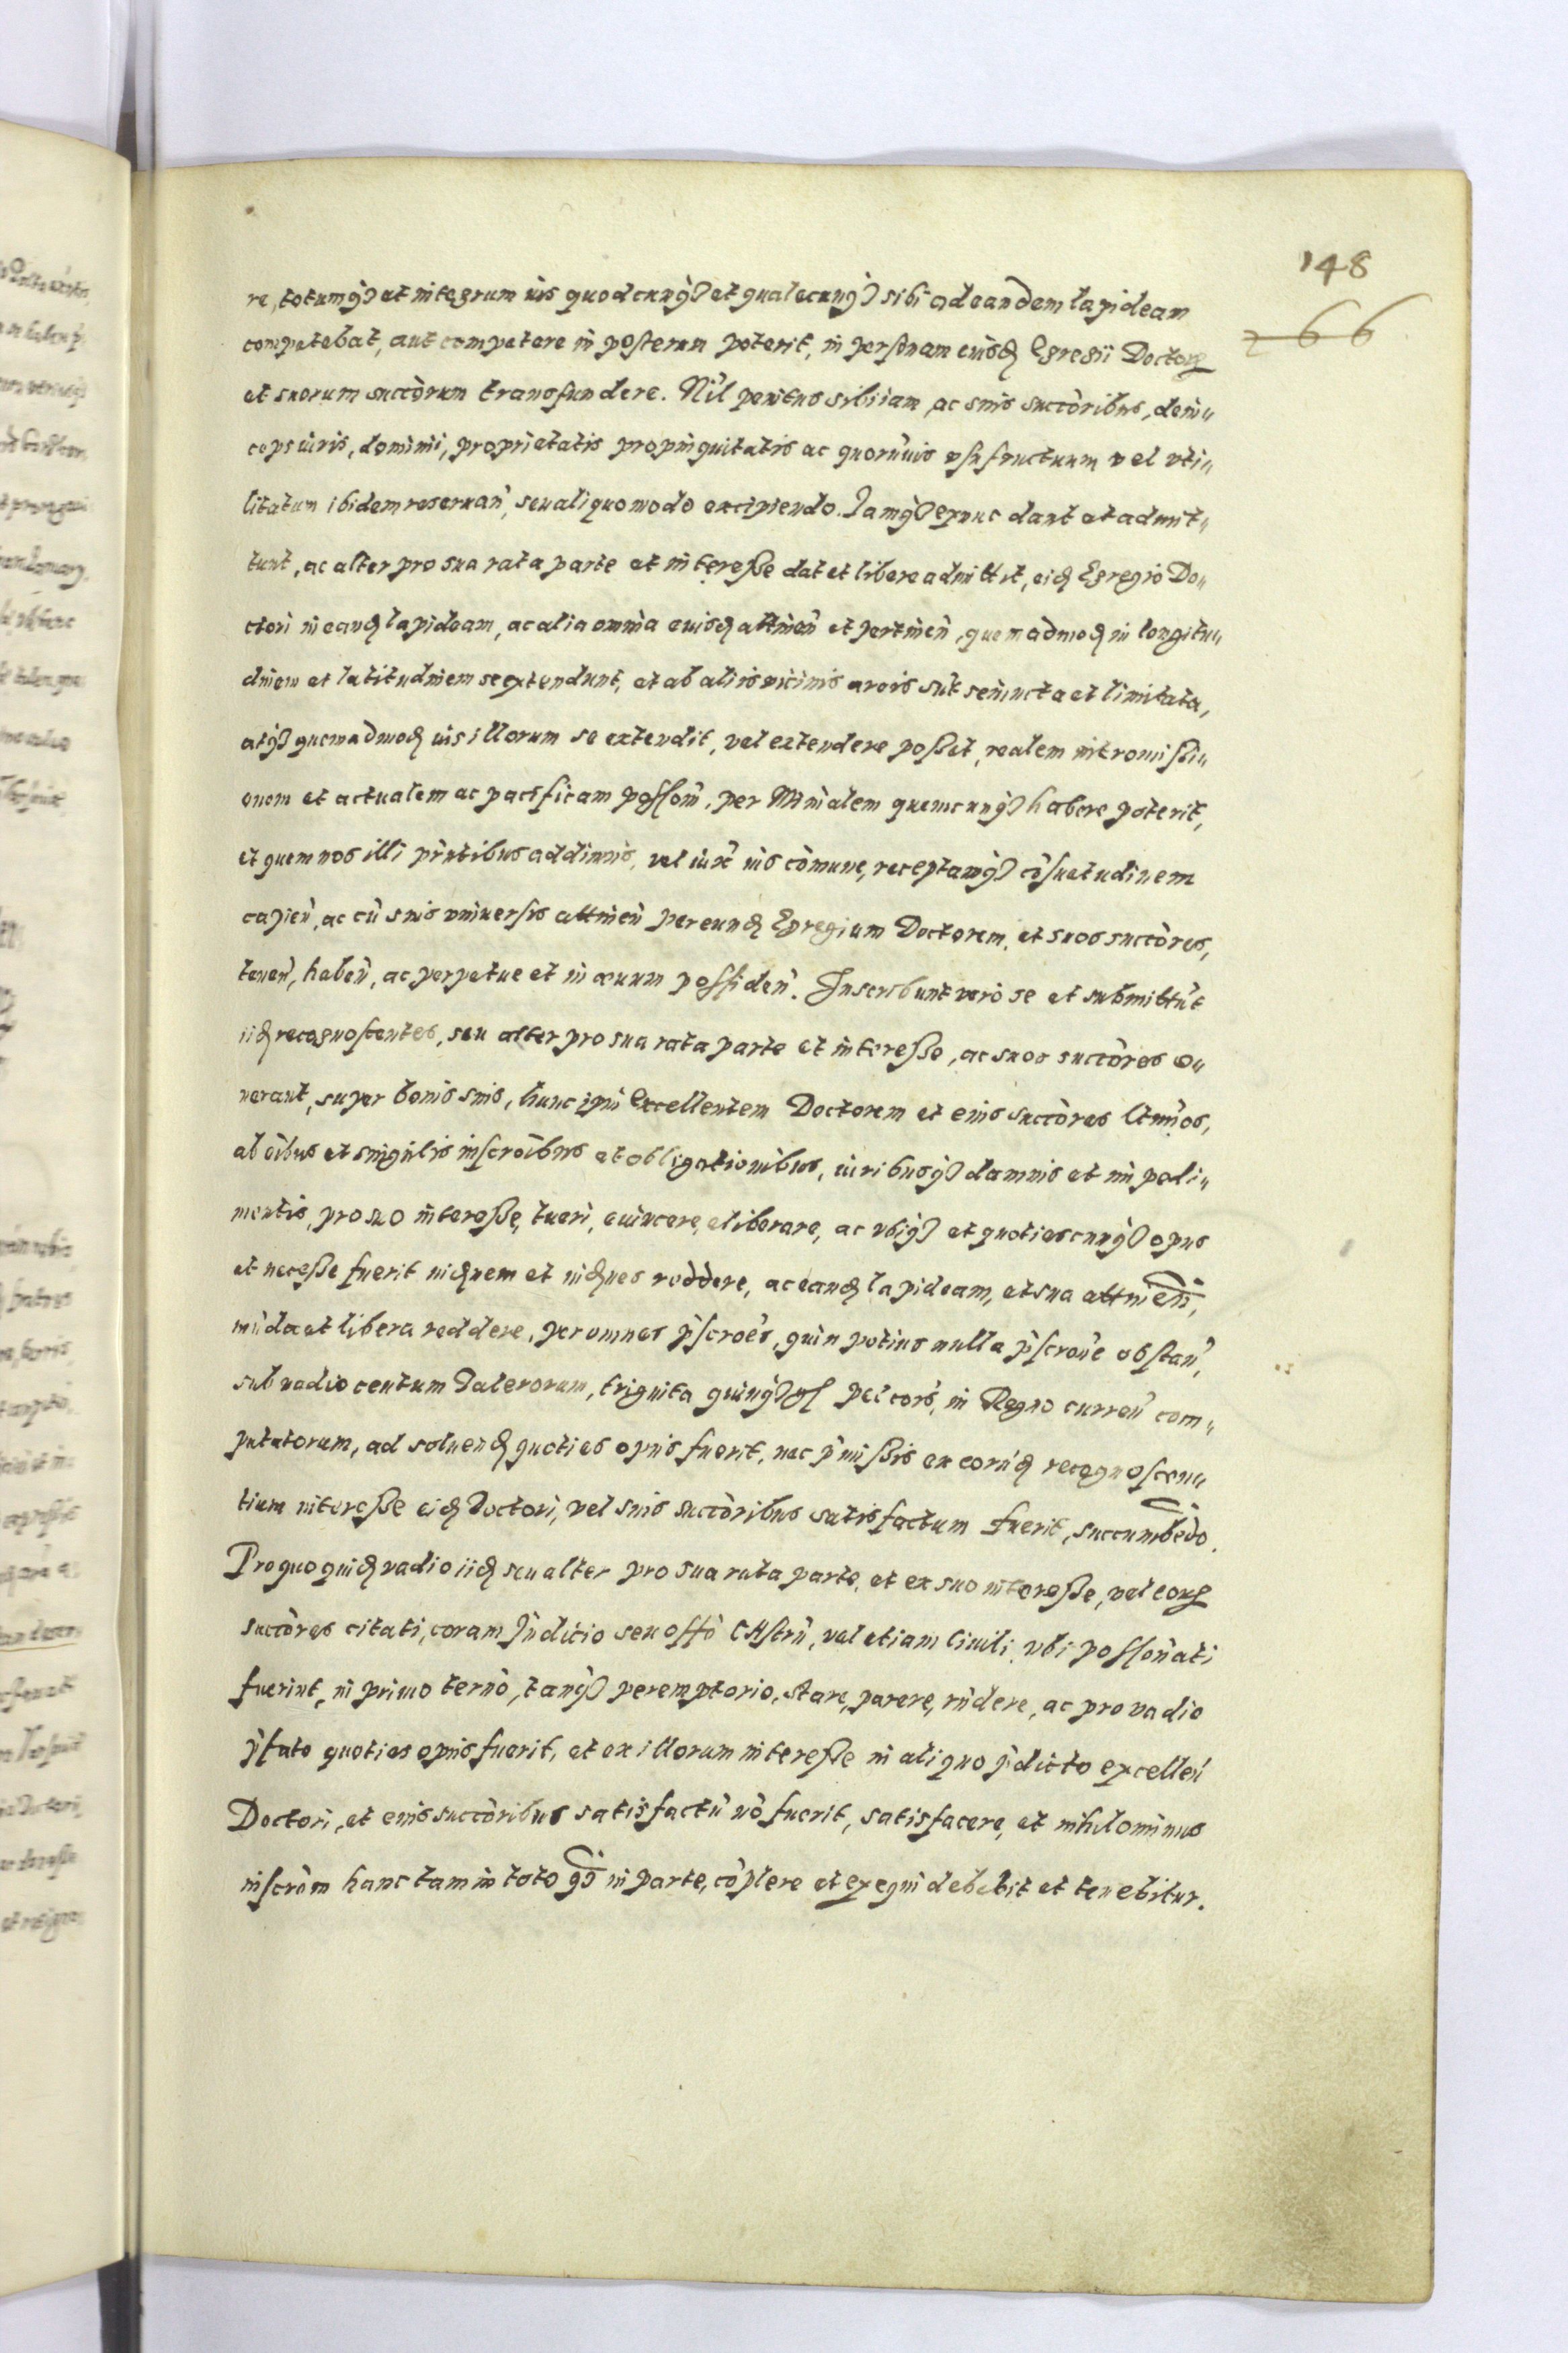 148
266
re, totumq3 et integrum ius quodcunq3 et qualecunq3 sibi ad eandem lapideam
competebat, aut competere in posterum poterit, in personam eiusd Egregii Doctor
et suorum succorum transfundere. Nil penitus sibi iam, ac suis succoribus, dein„
ceps iuris, dominii, proprietatis propinquitatis ac quorũuis usufructuum vel vti„
litatum ibidem reseruañ, seu aliquomodo excipiendo. Iamq3 exnuc dant et admit„
tunt, ac alter pro sua rata parte et interesse dat et libere admittit, eid Egregio Do„
ctori in eand lapideam, ac alia omnia euisd attineñ et pertineñ, quemadmod in longitu„
dinem et latitudinem se extendunt, et ab aliis vicinis areis sũt seiuncta et limitata,
atq3 quemadmod ius illorum se extendit, vel extendere posset, realem intromissi„
onem et actualem ac pacificam possom̃, per Mĩnialem quemcunq3 habere poterit,
et quem nos illi pñtibus addimus, vel iux ius comune, receptamq3 cõsuetudinem
capień, ac cũ suis vniuersis attineñ per eund Egregium Doctorem, et suos succores,
teneñ, habeñ, ac perpetue et in æuum possideñ. Inscribunt vero se et submittũt
iid recognoscentes, seu alter pro sua rata parte et interesse, ac suos succores o„
nerant, super bonis suis, hunc ipm̃ Excellentem Doctorem et eius succores ltimos,
ab oĩbus et singulis inscroĩbus et obligationibus, iuribusq3 damnis et impedi„
mentis, pro suo interesse, tueri, euincere, eliberare, ac vbiq3 et quotiescunq3 opus
et necesse fuerit indnem et indnes reddere, ac eand lapideam, et sua attineñ,
mũda et libera reddere, per omnes pscroẽs, quin potius nulla pscroñe obstañ,
sub vadio centum Dalerorum, triginta quinq3 gł peccorõ, in Regno curreñ com„
putatorum, ad soluend quoties opus fuerit, nec pmissis ex eorũd recognoscen„
tium interesse eid Doctori, vel suis succoribus satisfactum fuerit, succumbẽdo.
Pro quo quid vadio iid seu alter pro sua rata parte, et ex suo interesse, vel eor
succores citati, coram Iudicio seu offo Cstrñ, vel etiam Ciuili, vbi possoñati
fuerint, in primo terno, tanq3 peremptorio, stare, parere, rñdere, ac pro vadio
pfato quoties opus fuerit, et ex illorum interesse in aliquo pdicto excelleñ
Doctori, et eius succoribus satisfactũ nõ fuerit, satisfacere, et nihilominus
inscrom̃ hanc tam in toto q̃3 in parte, cõplere et exequi debebit et tenebitur.